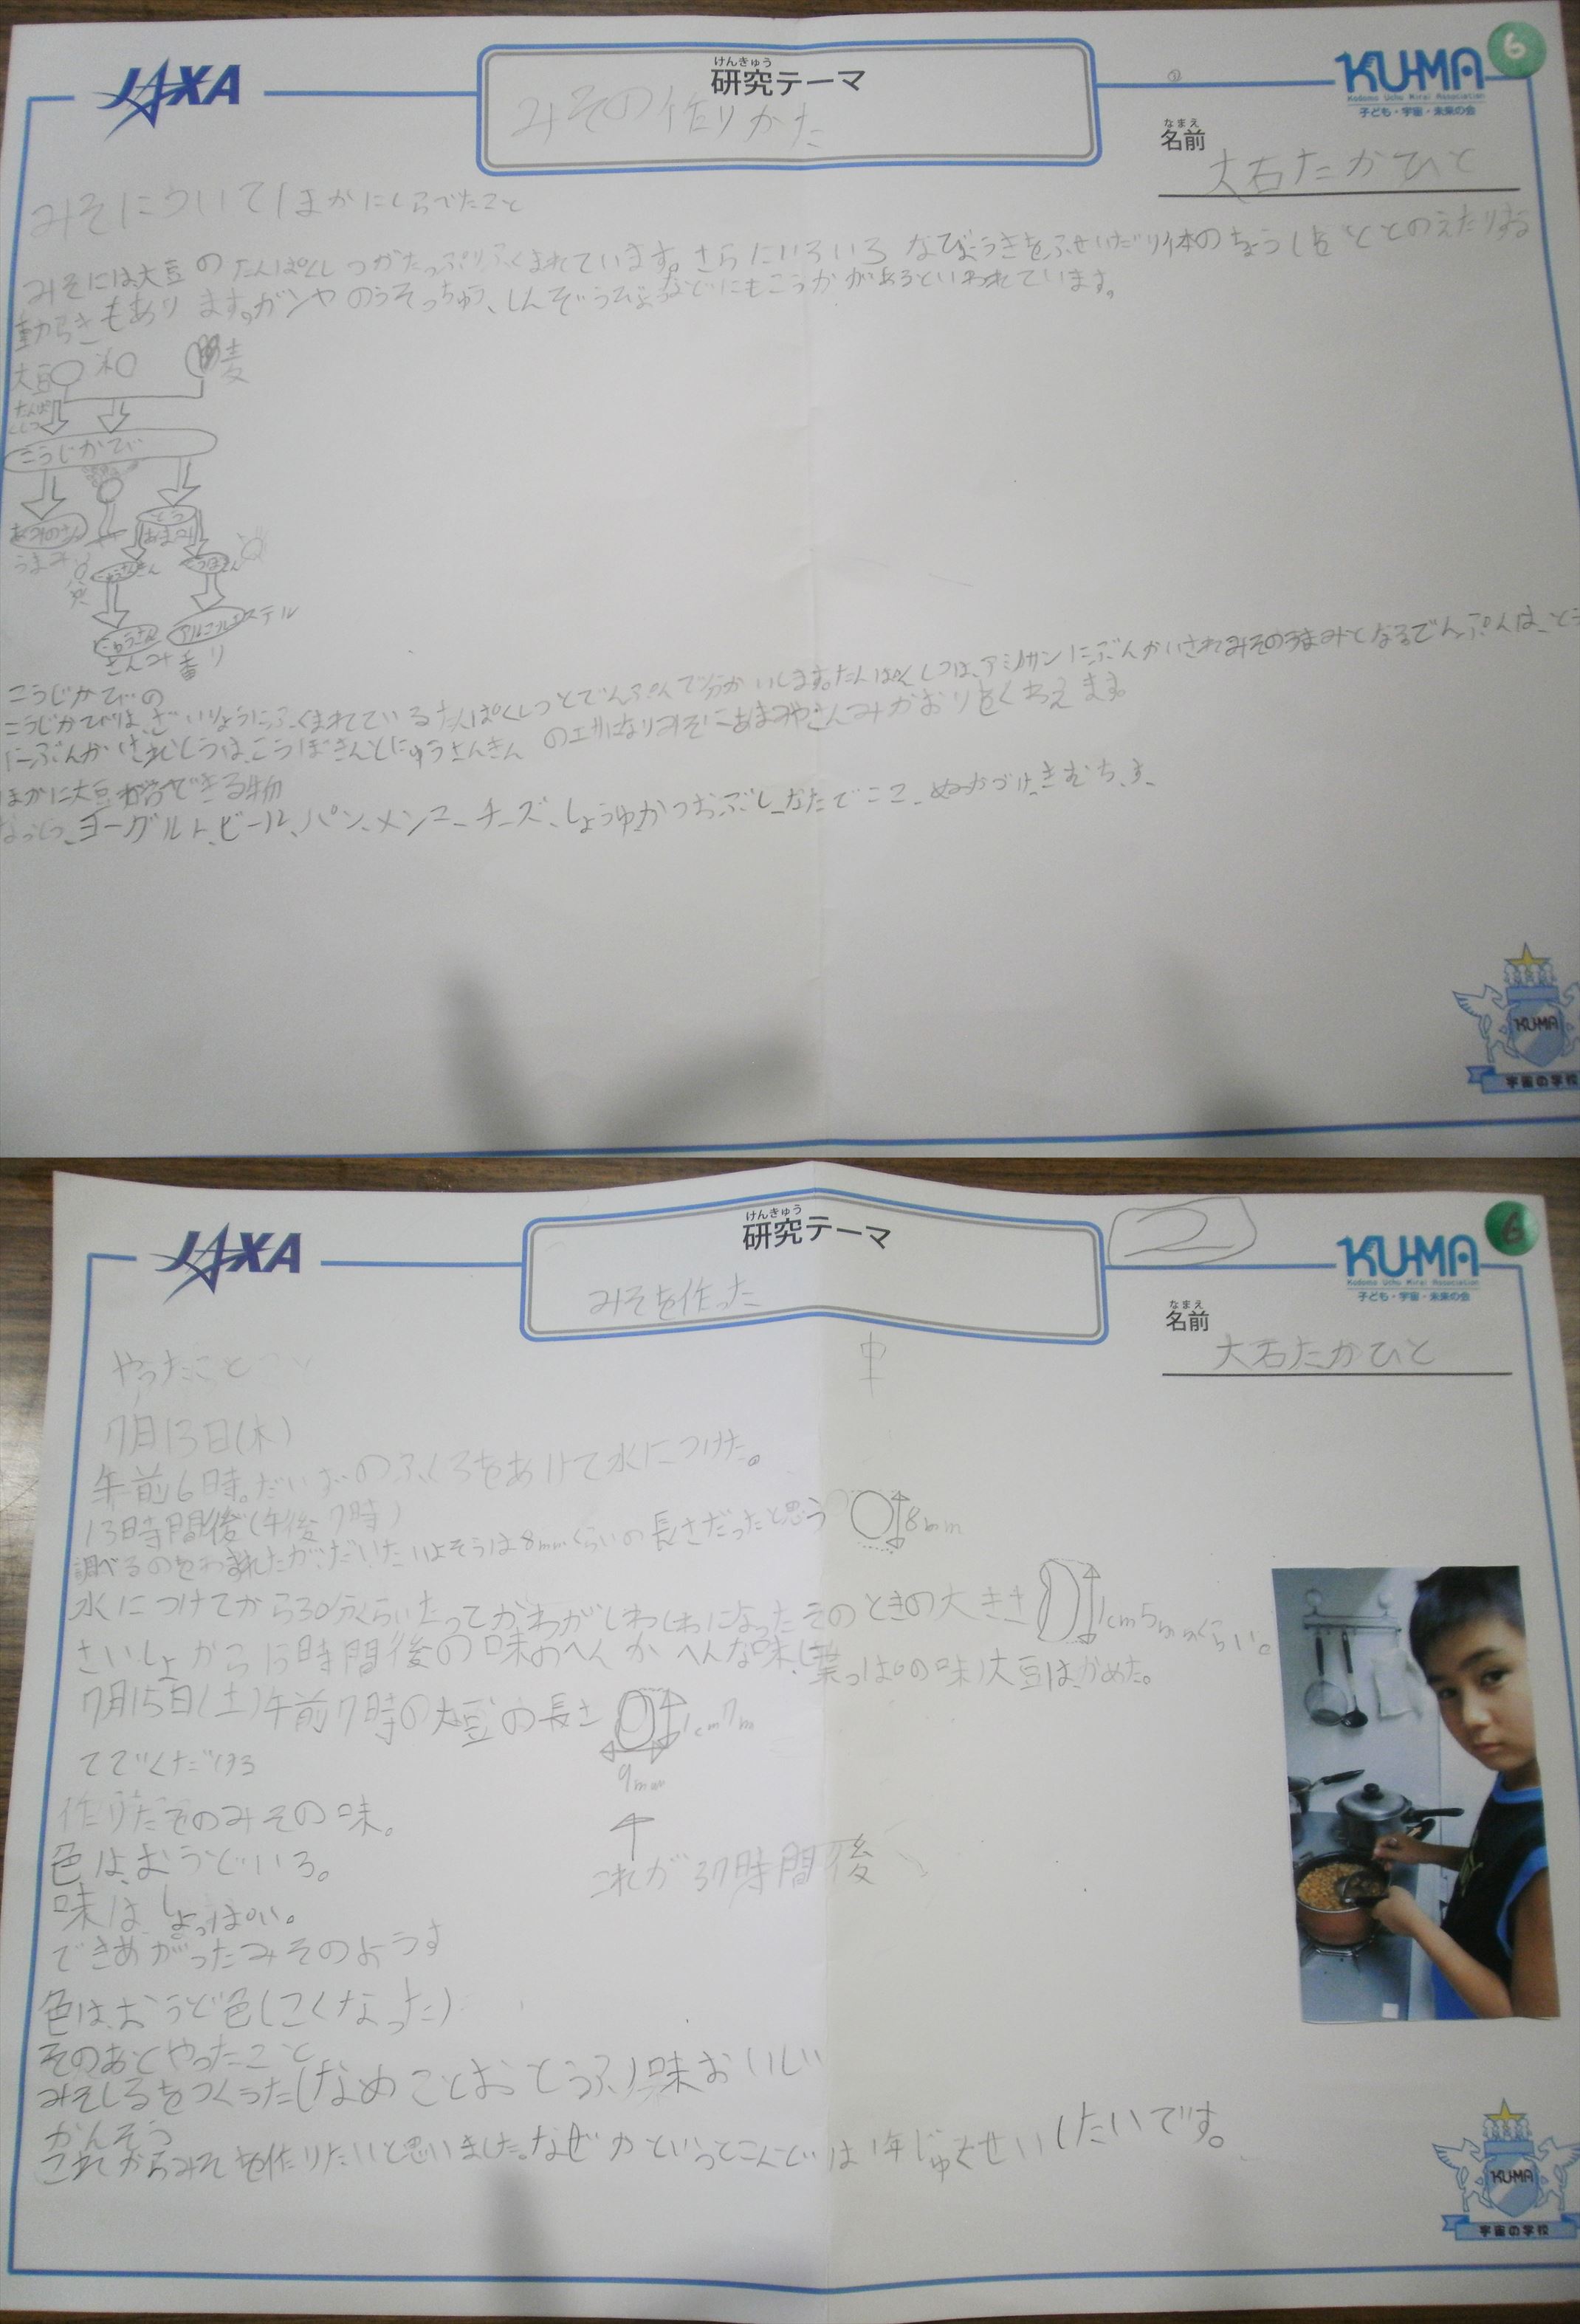 JAXA
けんきゅう
研究テーマ
みその作りかた
①
KU-MA
Kodomo Uchu Mirai Association
子ども・宇宙・未来の会
6
なまえ
名前
大石たかひと
みそについてほかにしらべたこと
みそには大豆のたんぱくしつがたっぷりふくまれています。さらにいろいろなびょうきをふせいだり体のちょうしをととのえたりする
動らきもあります。ガンやのうそっちゅう、しんぞうびょうなどにもこうかがあるといわれています。
大豆 米 麦
たんぱくしつ
こうじかび
とう
うまみ あまみ
にゅうさん アルコールエステル
さんみ 香り
こうじかびの
こうじかびは、ざいりょうにふくまれているたんぱくしつとでんぷんで分かいします。たんぱくしつは、アミノサンにぶんかいされみそのうまみとなるでんぷんは、とう
にぶんかいされとうは、こうぼきんとにゅうさんきんのエサになりみそにあまみやさんみかおりをくわえます。
ほかに大豆ができる物
なっとう、ヨーグルト、ビール、パン、メンマ、チーズ、しょうゆ、かつおぶし、なたでここ、ぬかづけ、きむち、す、
KU-MA
宇宙の学校
JAXA
けんきゅう
研究テーマ
みそを作った
2
KU-MA
Kodomo Uchu Mirai Association
子ども・宇宙・未来の会
6
なまえ
名前
大石たかひと
やったこと
中
7月13日(木)
午前6時。だいずのふくろをあけて水につけた。
13時間後(午後7時)
調べるのをわすれたが、だいたいよそうは8mmくらいの長さだったと思う 8mm
水につけてから30分くらいたってかわがしわしわになったそのときの大きさ 1cm5mmくらい。
さいしょから13時間後の味のへんかへんな味(葉っぱの味)大豆はかめた。
7月15日(土)午前7時の大豆の長さ 1cm7m
9mm
てでくだける
これが37時間後
作りたてのみその味。
色は、おうどいろ。
味はしょっぱい。
できあがったみそのようす
色は、おうど色(こくなった)
そのあとやったこと
みそしるをつくった(なめことおとうふ)味おいしい
かんそう
これからみそを作りたいと思いました。なぜかというとこんどは1年じゅくせいしたいです。
KU-MA
宇宙の学校